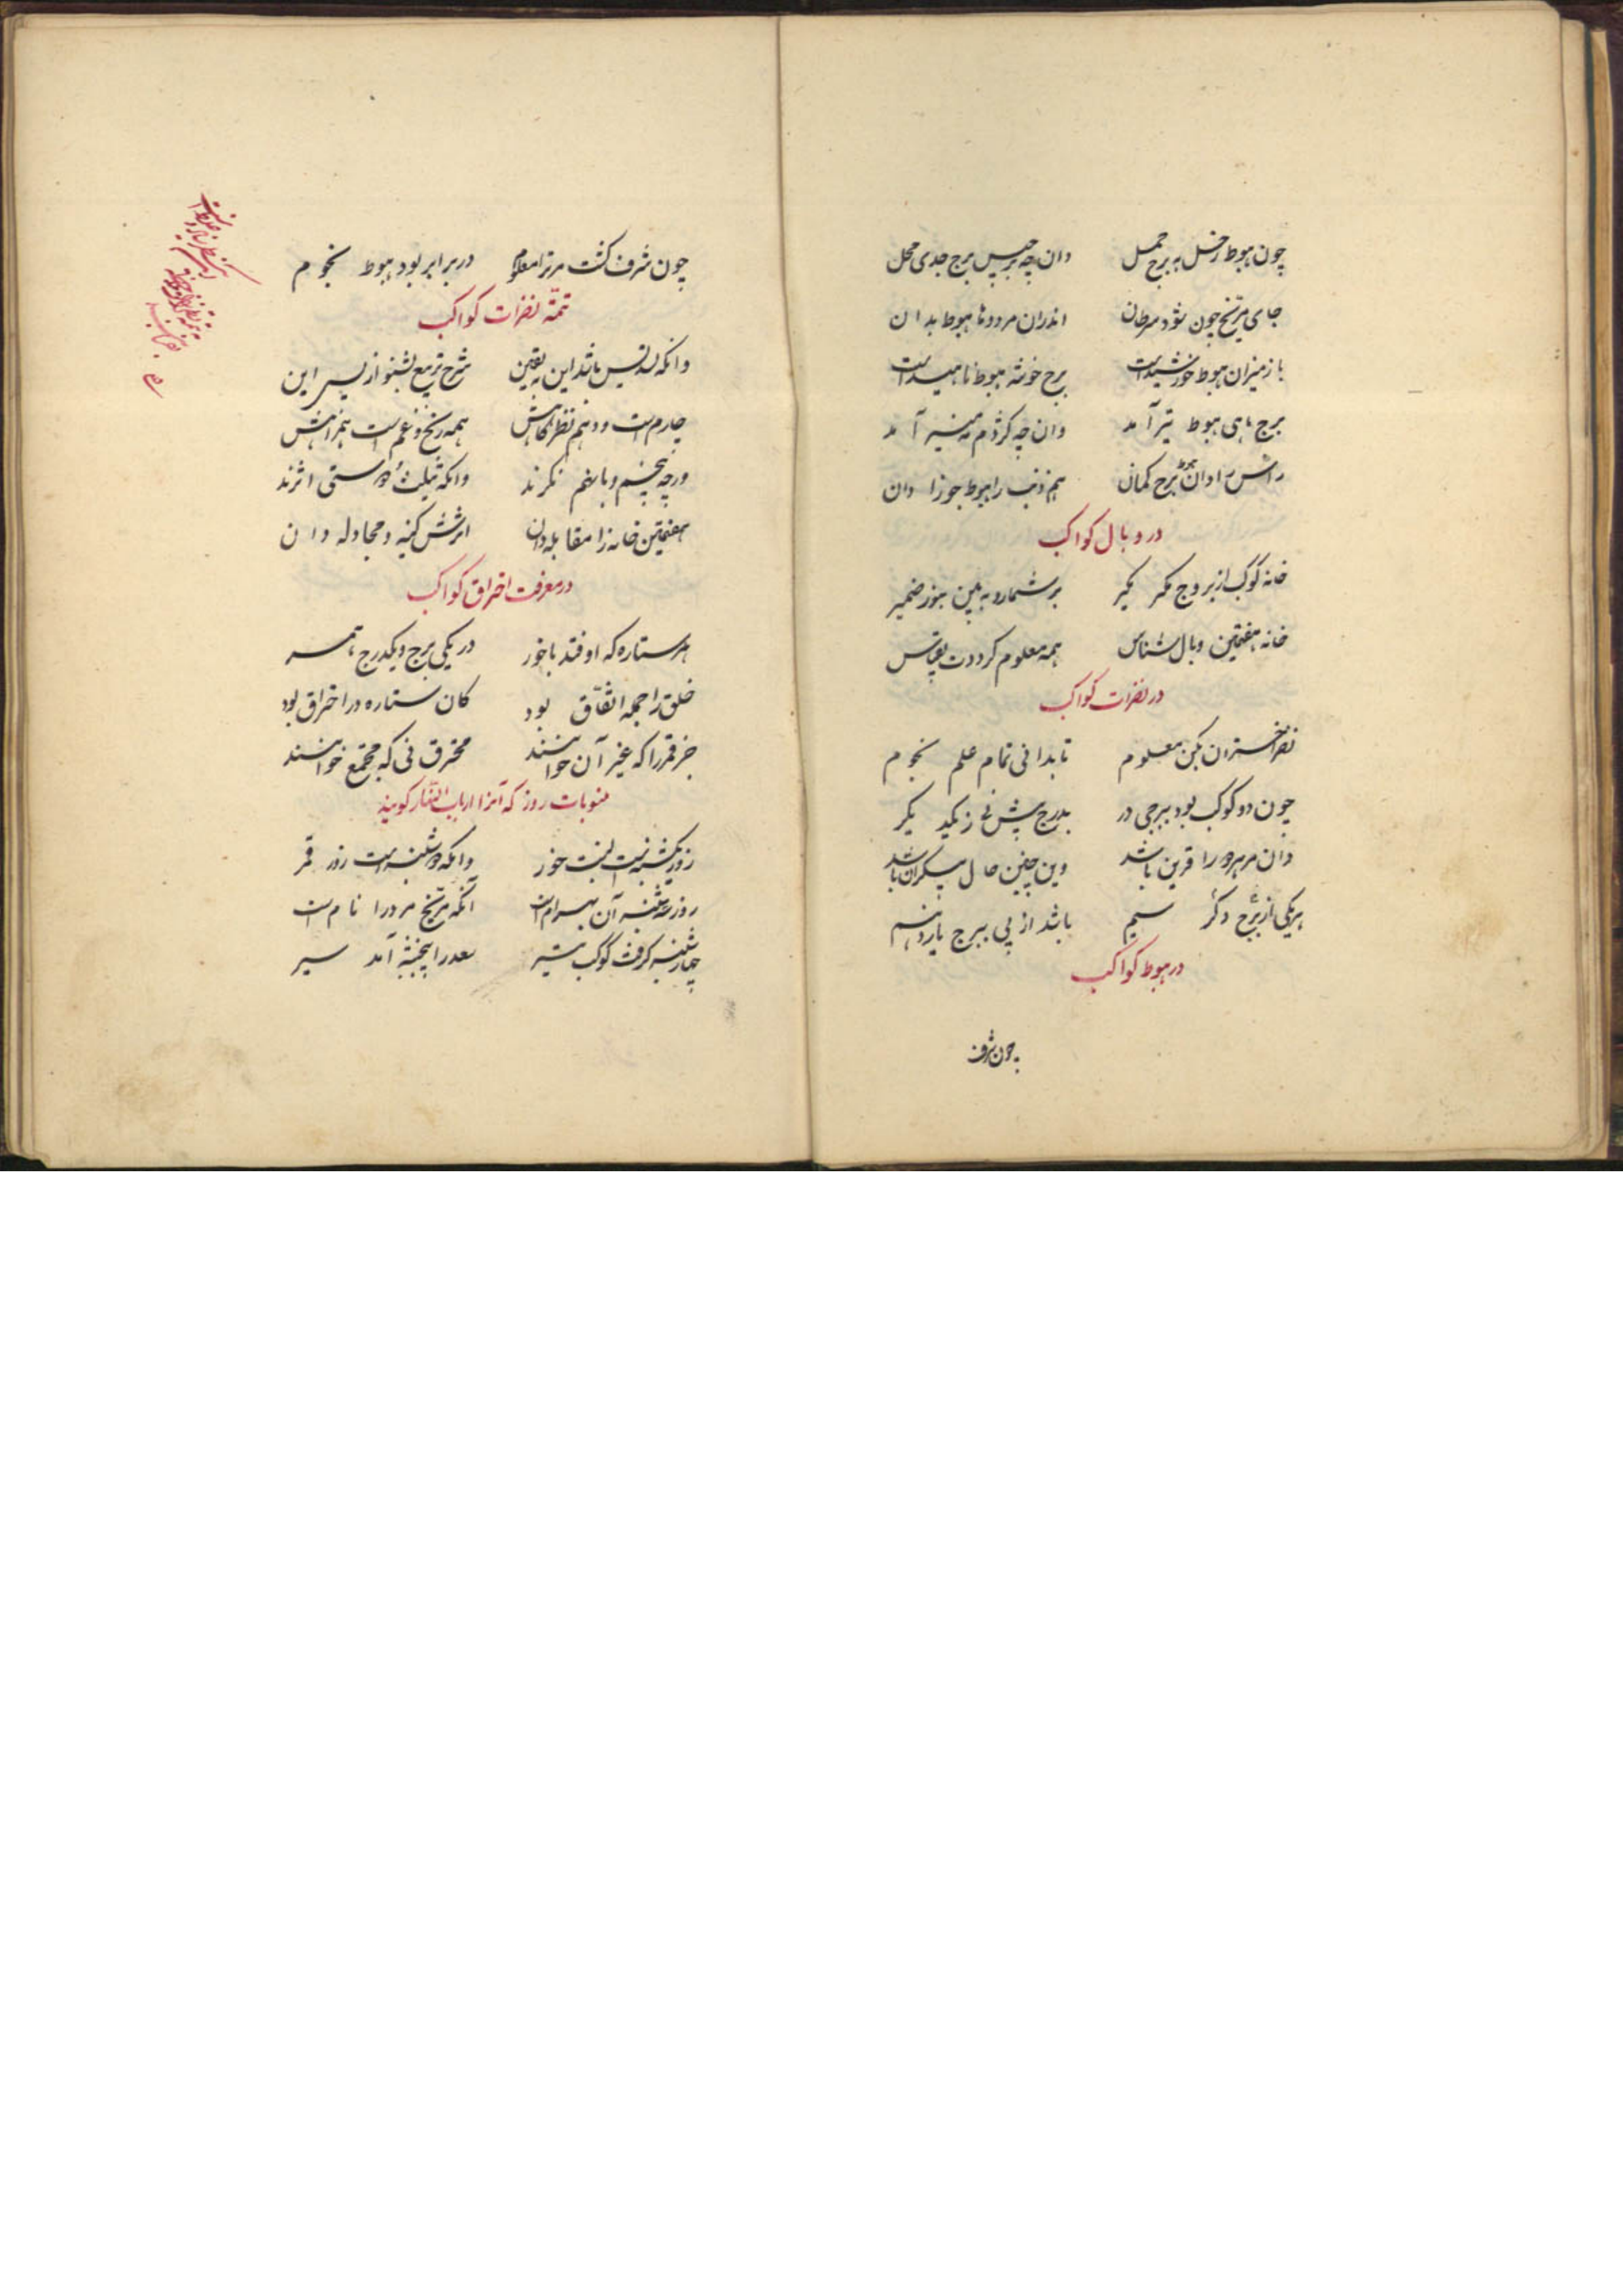 چون هبوط زحل به برج حمل    دان چه برجیس برج جدی محل
جای مریخ چون شود سرطان    اندران مرورا هبوط بدان
باز میزان هبوط خورشیدست    برج خوشه هبوط ناهیدست
برج ماهی هبوط تیر آمد    وان چه کژدم مه منیر آمد
راس را دان هبوط برج کمان    هم ذنب را هبوط جوزا دان
در وبال کواکب
خانه کوکب از بروج مکر بکیر    برشمارد به بین بنور ضمیر
خانه هفتمین وبال شناس    همه معلوم کرددت بقیاس
در نظرات کواکب
نظر اختران بکن معلوم    تا بدانی تمام علم نجوم
چون دو کوکب بود ببرجی در    بدرج پیش نی ز یکدیکر
دان مر هر دو را قرین باشد    وین چنین حال بیکران باشد
هر یکی از برج دکر سیم    باشد از پی ببرج یازدهم
در هبوط کواکب
چون شرف
چون شرف کشت مر ترا معلوم    در برابر بود هبوط نجوم
تتمّه نظرات کواکب
وانکه تسدیس باشد این به یقین    شرح تربیع بشنو از پس این
چارم است و دهم نظرکاهش    همه رنج و غم است همراهش
ورچه پنجم و یا نهم نکرند    وانکه تثلیث و دوستی اثرند
هفتمین خانه را مقابله دان    اثرش کینه و مجادله دان
در معرفت احتراق کواکب
هر ستاره که اوفتد با خور    در یکی برج و یکدرج تا سر
خلق را جمله اتّفاق بود    کان ستاره در احتراق بود
جز قمر را که غیر آن خوانند    محترق نی که مجتمع خوانند
منوبات روز که آنرا ارباب النّهار کویند
روز یکشنبه است نسبت خور    وانکه دوشنبه است روز قمر
روز سه شنبه آن بهرام است    آنکه مریخ مرورا نام است
چهارشنبه کرفت کوکب تیر    سعد را پنجشنبه آمد سیر